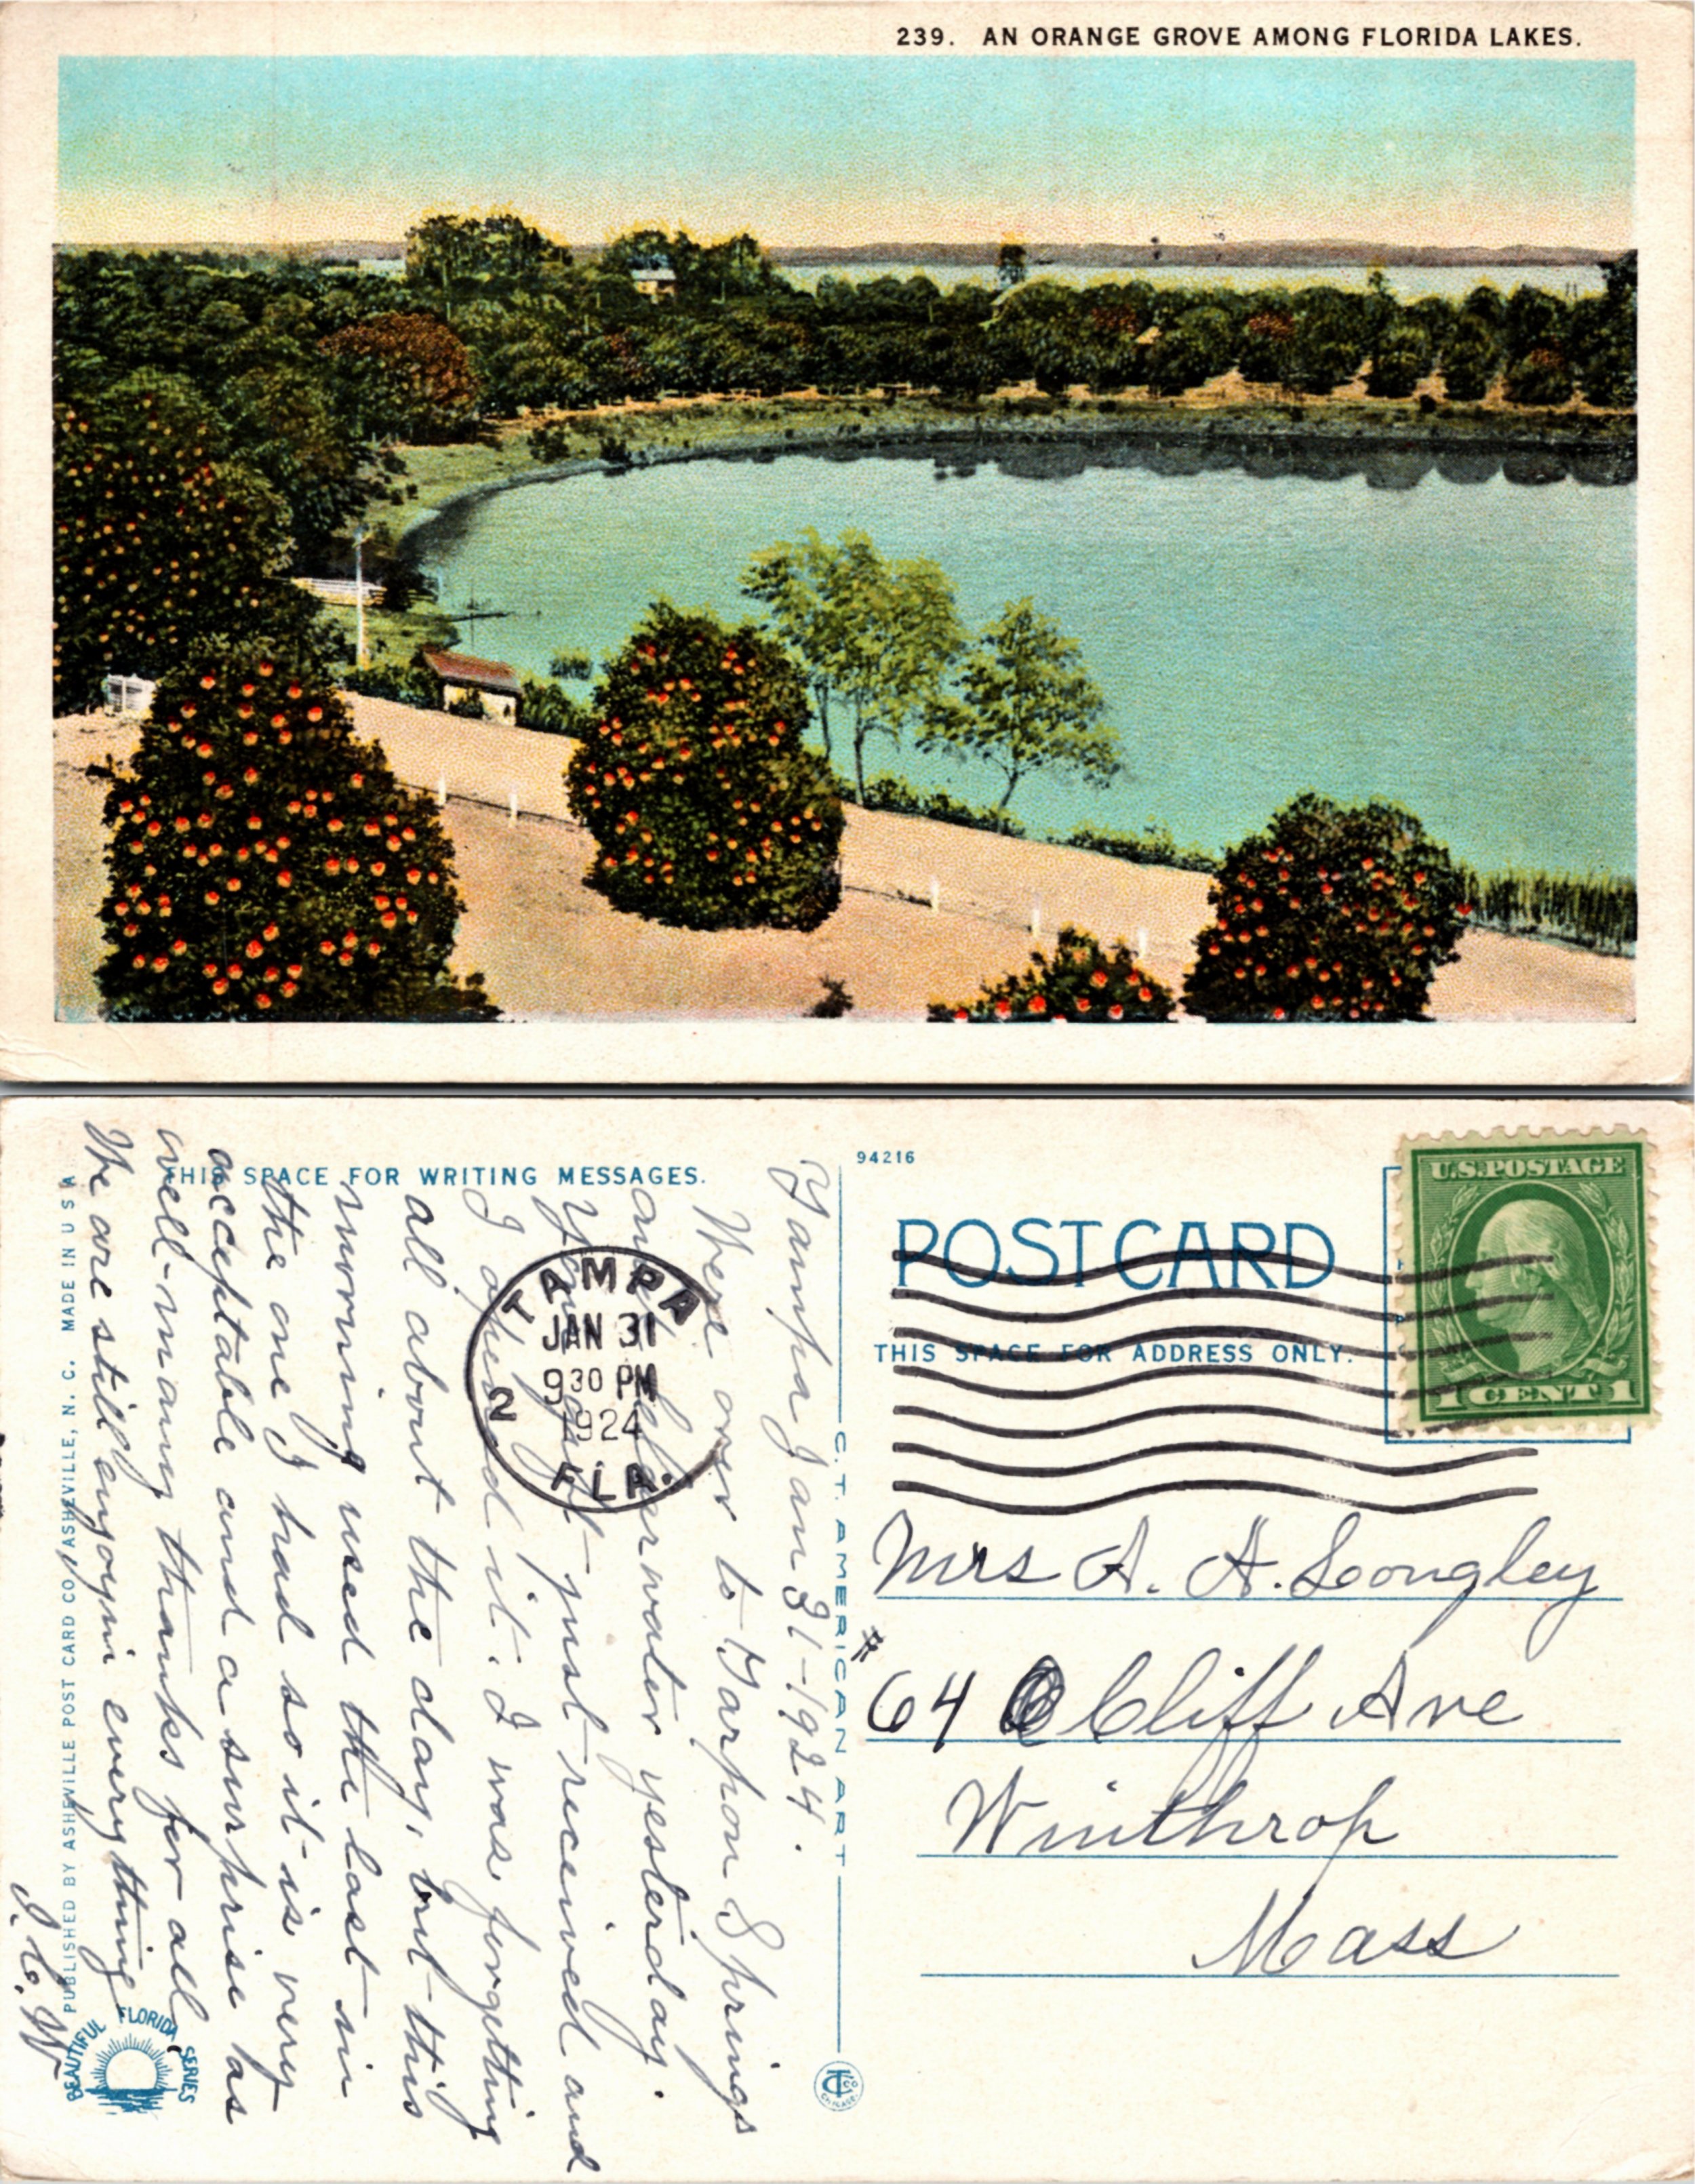 239. AN ORANGE GROVE AMONG FLORIDA LAKES.
THIS SPACE FOR WRITING MESSAGES.
94216
POST CARD
THIS SPACE FOR ADDRESS ONLY.
U.S. POSTAGE
1 CENT 1
TAMPA
JAN 31
930 PM
1924
2
FLA.
Tampa Jan 31-1924.
Were over to Tarpon Springs
and Clearwater yesterday.
Your just received and
I opened it. I was forgetting
all about the day, but this
morning used the last in
the one I had so it is very
acceptable and a surprise as
well - many thanks for all
We are still enjoyin everything
Mrs A. A. Longley
#64 Cliff Ave
Winthrop
Mass
C. T. AMERICAN ART
PUBLISHED BY ASHEVILLE POST CARD CO., ASHEVILLE, N. C. MADE IN U S A
BEAUTIFUL FLORIDA SERIES